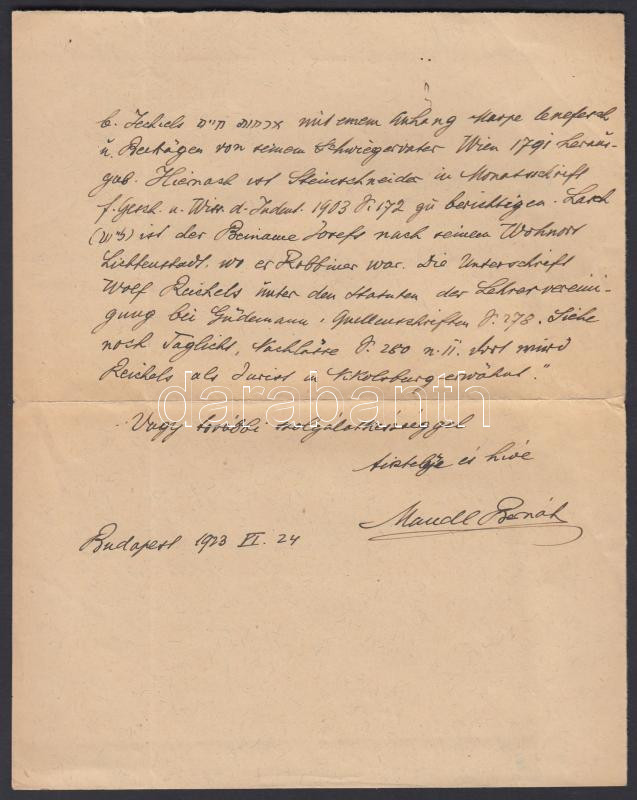 b. Jechiels ארחות חיים mit einem Anhang Marpe lenefesch
u. Beiträgen von seinem Schwiegervater Wien 1791 heraus-
gab. Hiernach ist Steinschneider in Monatsschrift
f. Gesch. u. Wiss. d. Judent. 1903 S. 172 zu berichtigen. Lasch
(ליש) ist der Beiname Josefs nach seinem Wohnort
Lichtenstadt, wo er Rabbiner war. Die Unterschrift
Wolf Reichels unter den Statuten der Lehrervereini-
gung bei Güdemann, Quellenschriften S. 278. Siehe
noch Taglicht, Nachlässe S. 280 n. 11. dort wird
Reichels als Jurist in Nikolsburg erwähnt."
Vagy további szolgálatkészséggel
tisztelője és híve
Mandl Bernát
Budapest 1923 VI. 24
darabanth